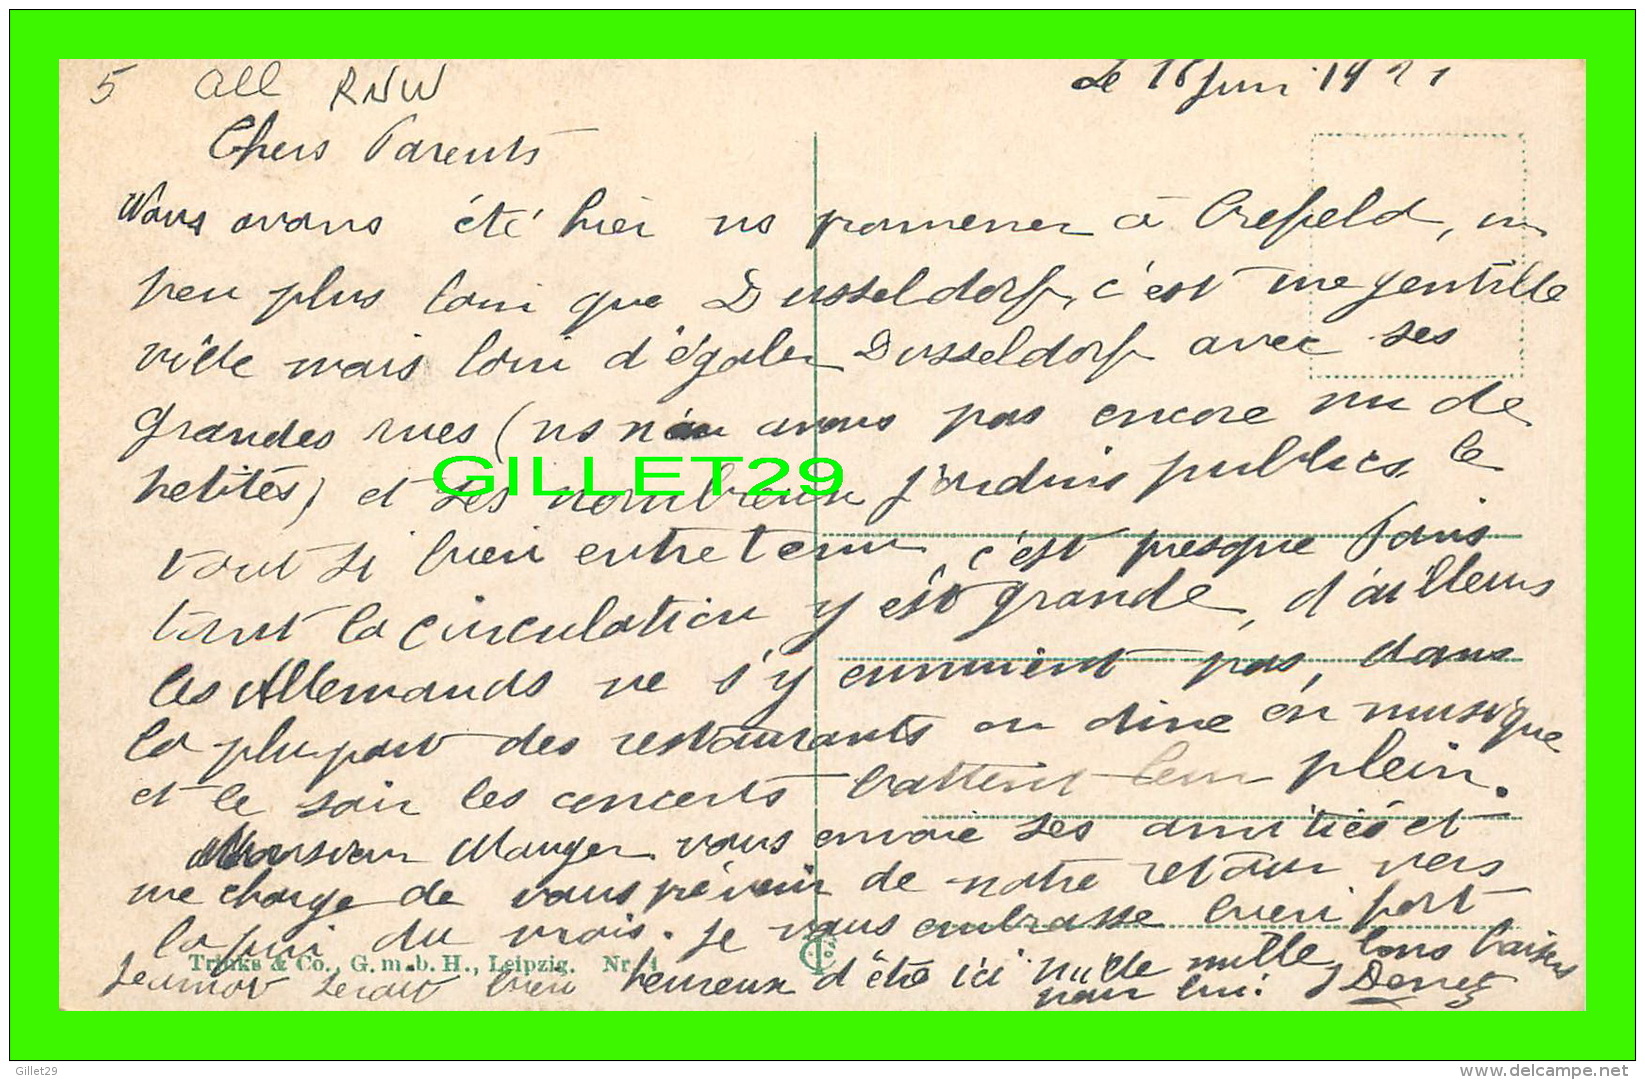 5 all RNW
Le 18 Juin 1921
Chers Parents
Nous avons été hier ns promener à Crefeld, un
peu plus loin que Dusseldorf, c'est une gentille
ville mais loin d'égaler Dusseldorf avec ses
grandes rues (ns n'en avons pas encore vu de
petites) et ses nombreux jardins publics le
tout si bien entretenu, c'est presque Paris
tant la circulation y est grande, d'ailleurs
les Allemands ne s'y ennuient pas, dans
la plupart des restaurants on dine en musique
et le soir les concerts battent leur plein.
Monsieur Mauger vous envoie ses amitiés et
me charge de vous prévenir de notre retour vers
la fin du mois. Je vous embrasse bien fort
serait bien heureux d'être ici mille mille bons baisers
pour lui.
Trinks & Co., G. m. b. H., Leipzig. Nr. 4
GILLET29
Gillet29
www.delcampe.net